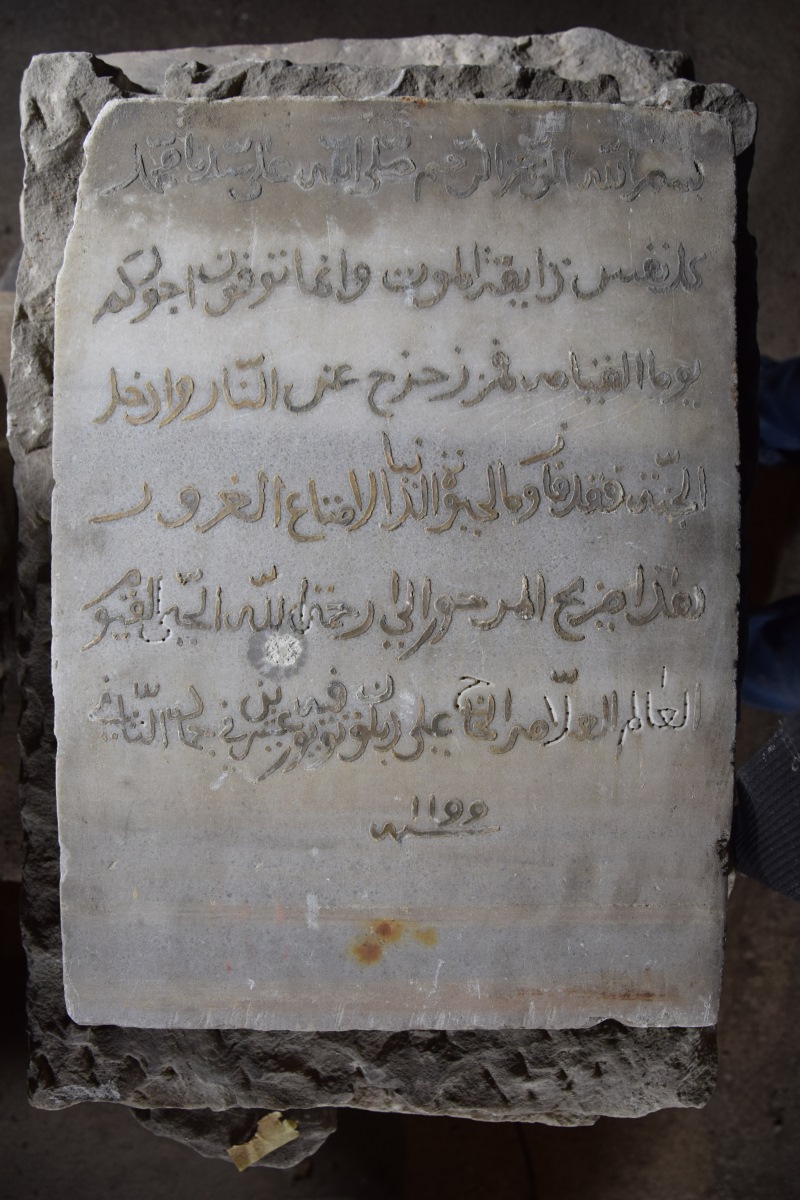 بسم الله الرحمن الرحيم صلى الله على سيدنا محمد
كل نفس زايقة الموت وانما توفون اجوركم
يوما القيامه فمن زحزح عن النار وادخل
الجنته فقد فاز وما الحيوة الدنيا الا متاع الغرور
هذا ضريح المرحوم الى رحمة الله الحيي القيوم
العالم العلامه الحاج على توفي في عشرين في جماد الثاني
سنه ١١٩٩